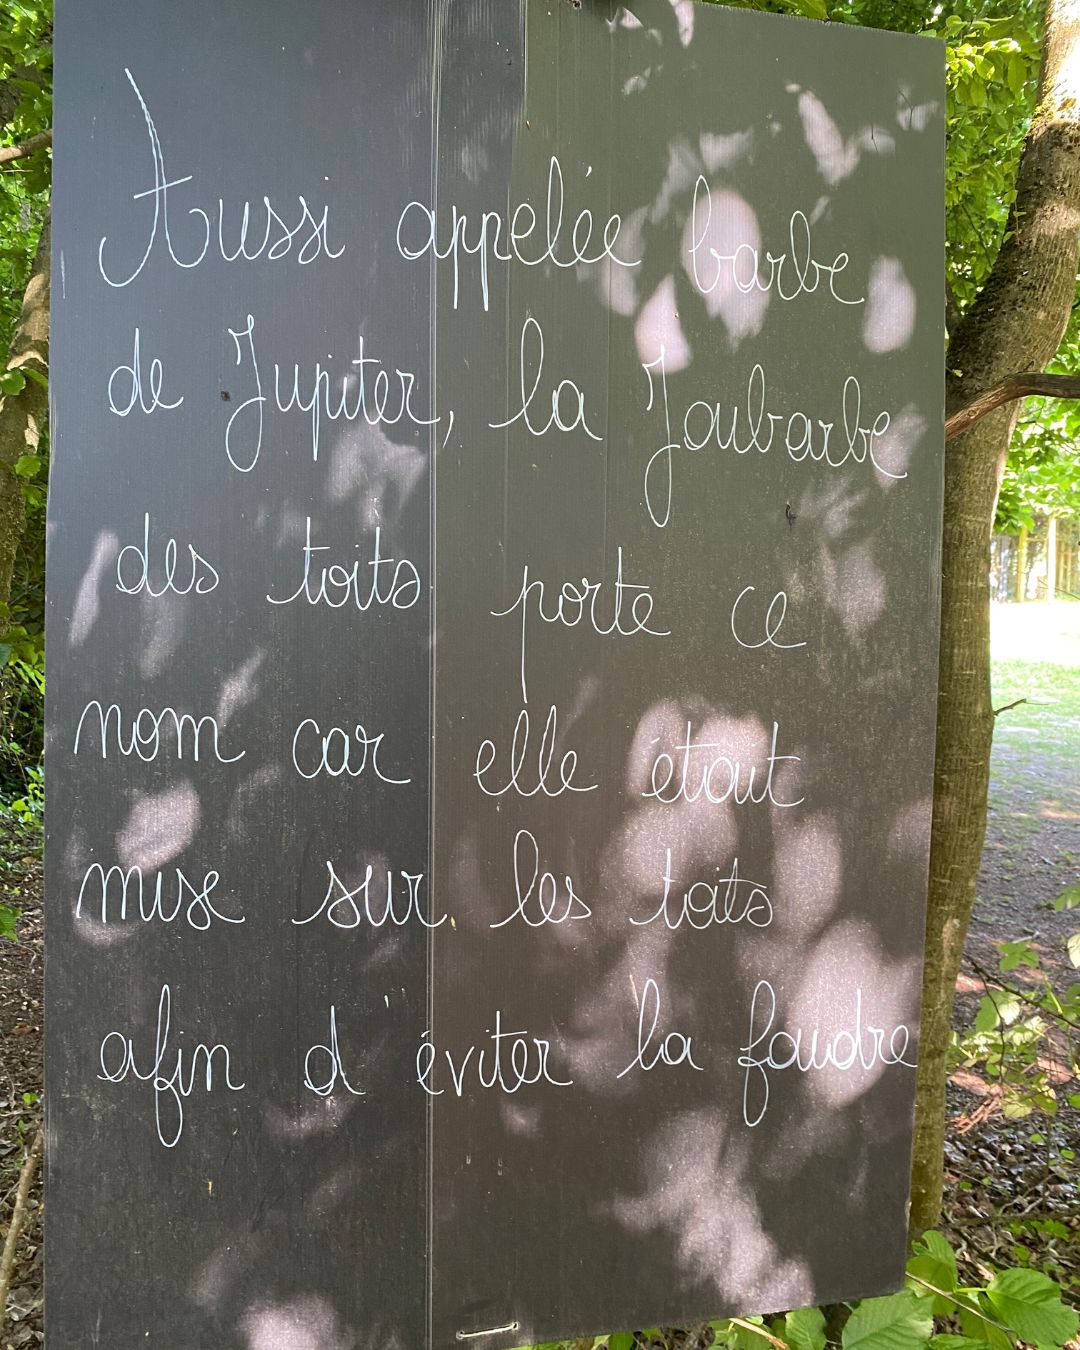 Aussi appelée barbe
de Jupiter, la Joubarbe
des toits porte ce
nom car elle était
mise sur les toits
afin d'éviter la foudre